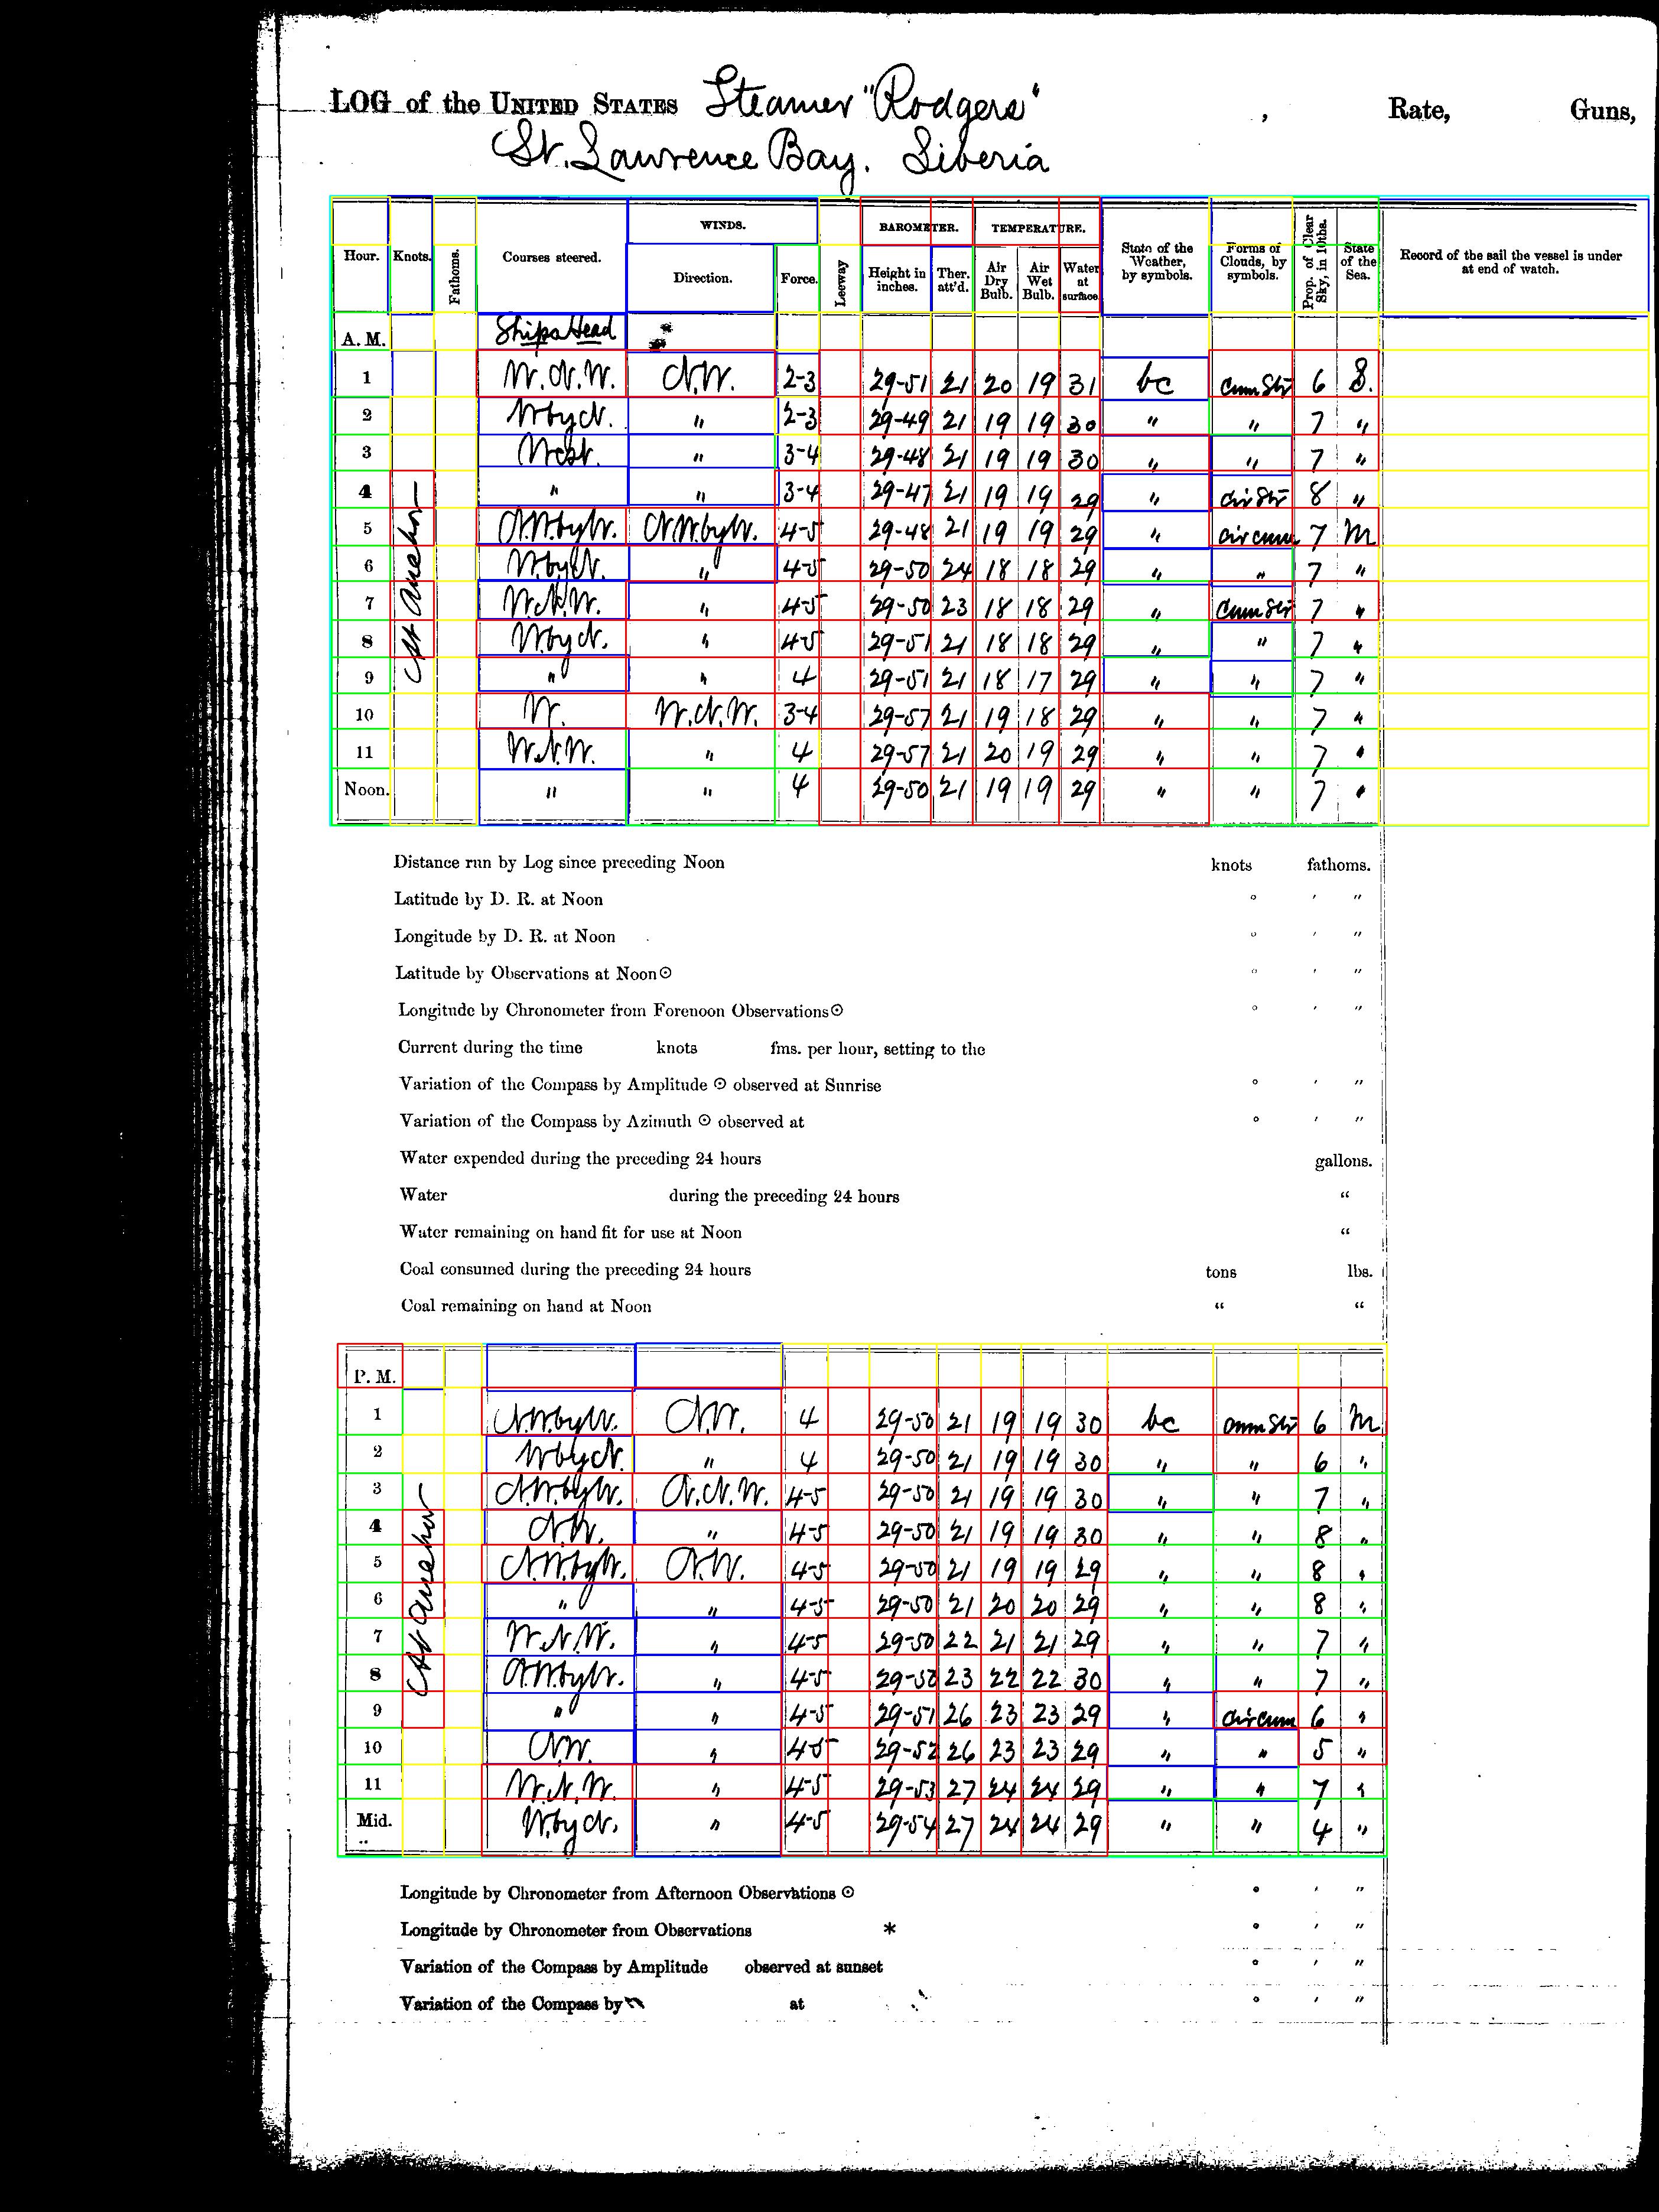 LOG of the UNITED STATES Steamer "Rodgers" , Rate, Guns,
St. Lawrence Bay. Siberia
WINDS. BAROMETER. TEMPERATURE.
Hour. Knots. Fathoms. Courses steered. Direction. Force. Leeway Height in inches. Ther. att'd. Air Dry Bulb. Air Wet Bulb. Water at surface. State of the Weather, by symbols. Forms of Clouds, by symbols. Prop. of Clear Sky, in 10ths. State of the Sea. Record of the sail the vessel is under at end of watch.
A. M. Ships Head
At Anchor
1 W.N.W. N.W. 2-3 29-51 21 20 19 31 bc Cum Str 6 S.
2 W by N. " 2-3 29-49 21 19 19 30 " " 7 "
3 West. " 3-4 29-48 21 19 19 30 " " 7 "
4 " " 3-4 29-47 21 19 19 29 " Cir Str 8 "
5 N.W. by W. N.W. by W. 4-5 29-48 21 19 19 29 " Cir cum 7 M
6 W. by N. " 4-5 29-50 24 18 18 29 " " 7 "
7 W.N.W. " 4-5 29-50 23 18 18 29 " Cum Str 7 "
8 W. by N. " 4-5 29-51 21 18 18 29 " " 7 "
9 " " 4 29-51 21 18 17 29 " " 7 "
10 W. W.N.W. 3-4 29-57 21 19 18 29 " " 7 "
11 W.N.W. " 4 29-57 21 20 19 29 " " 7 "
Noon. " " 4 29-50 21 19 19 29 " " 7 "
Distance run by Log since preceding Noon knots fathoms.
Latitude by D. R. at Noon ° ′ ″
Longitude by D. R. at Noon ° ′ ″
Latitude by Observations at Noon ☉ ° ′ ″
Longitude by Chronometer from Forenoon Observations ☉ ° ′ ″
Current during the time knots fms. per hour, setting to the
Variation of the Compass by Amplitude ☉ observed at Sunrise ° ′ ″
Variation of the Compass by Azimuth ☉ observed at ° ′ ″
Water expended during the preceding 24 hours gallons.
Water during the preceding 24 hours “
Water remaining on hand fit for use at Noon “
Coal consumed during the preceding 24 hours tons lbs.
Coal remaining on hand at Noon “ “
P. M.
At Anchor
1 N.W. by W. N.W. 4 29-50 21 19 19 30 bc Cum Str 6 M
2 W by N. " 4 29-50 21 19 19 30 " " 6 "
3 N.W. by W. N.N.W. 4-5 29-50 21 19 19 30 " " 7 "
4 N.W. " 4-5 29-50 21 19 19 30 " " 8 "
5 N.W. by W. N.W. 4-5 29-50 21 19 19 29 " " 8 "
6 " " 4-5 29-50 21 20 20 29 " " 8 "
7 W.N.W. " 4-5 29-50 22 21 21 29 " " 7 "
8 N.W. by W. " 4-5 29-50 23 22 22 30 " " 7 "
9 " " 4-5 29-51 26 23 23 29 " Cir cum 6 "
10 N.W. " 4-5 29-52 26 23 23 29 " " 5 "
11 W.N.W. " 4-5 29-53 27 24 24 29 " " 7 "
Mid. W. by N. " 4-5 29-54 27 24 24 29 " " 4 "
Longitude by Chronometer from Afternoon Observations ☉ ° ′ ″
Longitude by Chronometer from Observations * ° ′ ″
Variation of the Compass by Amplitude observed at sunset ° ′ ″
Variation of the Compass by at ° ′ ″